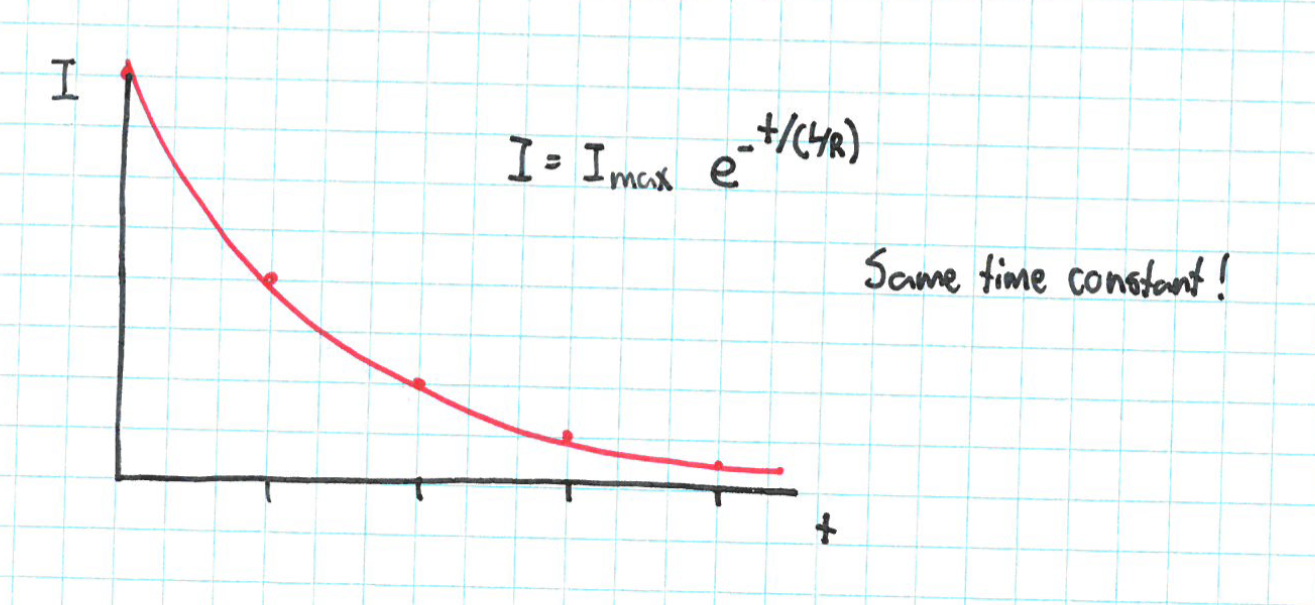 I
I = Imax e^-t/(L/R)
Same time constant!
t